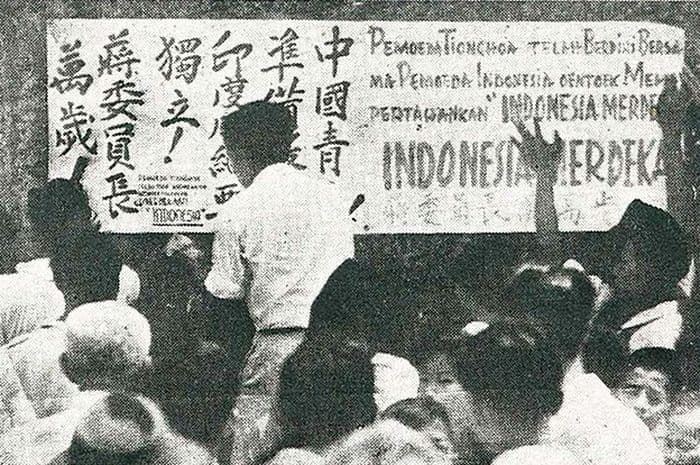 中國青
準備
印度尼西
獨立!
蔣委員長
萬歲
PEMOEDA TIONGHOA
"INDONESIA"
PEMOEDA TIONGHOA TELAH BERDIRI BERSA
MA PEMOEDA INDONESIA OENTOEK MEM
PERTAHANKAN "INDONESIA MERDE
INDONESIA MERDEKA
委員長